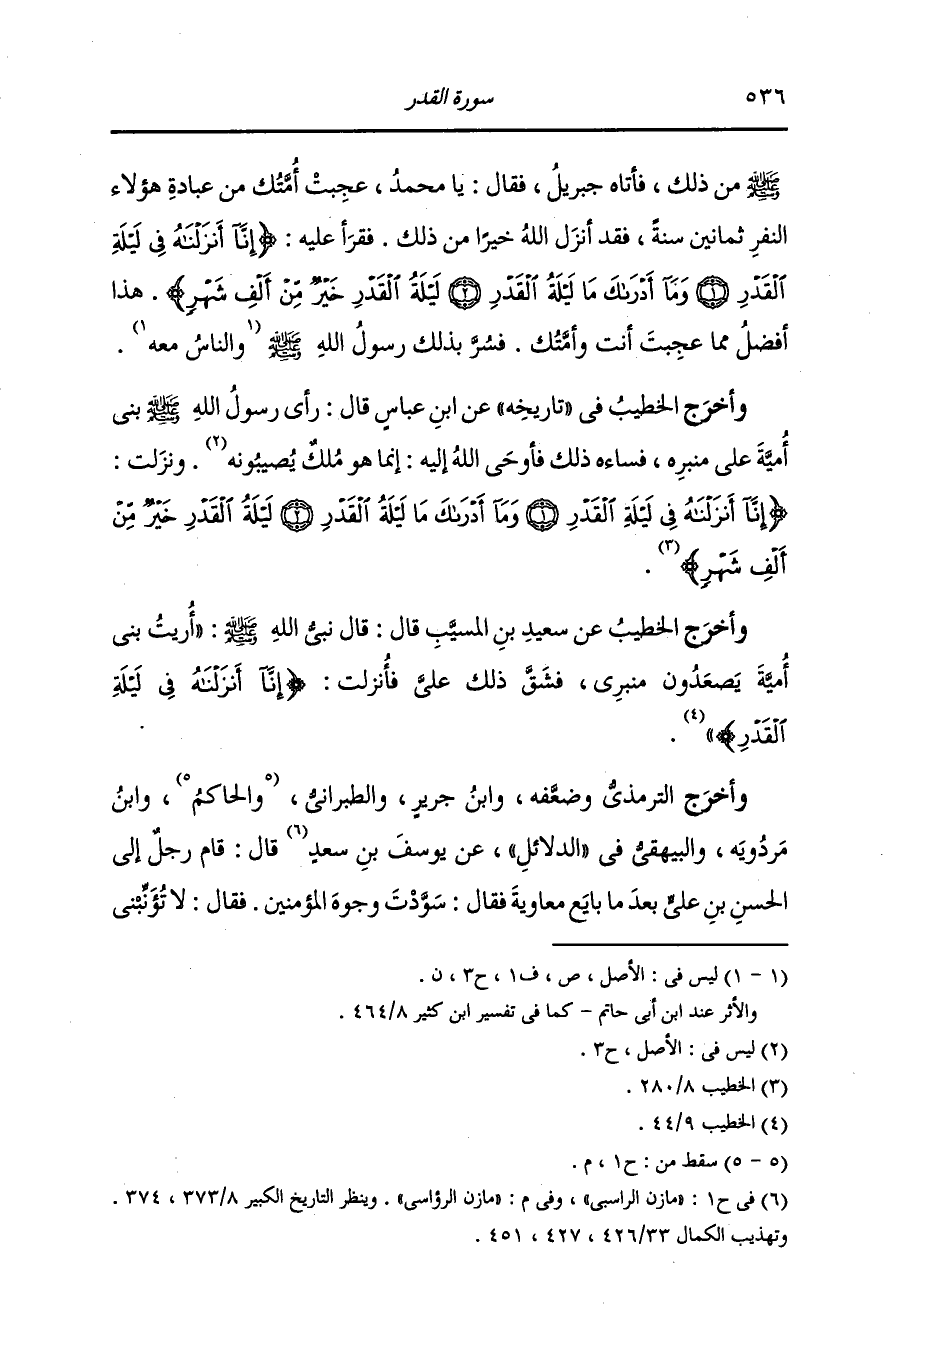 ٥٣٦ سورة القدر
ﷺ من ذلك ، فأتاه جبريلُ ، فقال : يا محمدُ ، عجِبتْ أُمَّتُك من عبادةِ هؤلاء
النفرِ ثمانين سنةً ، فقد أنزَل اللهُ خيرًا من ذلك . فقرَأ عليه : ﴿إِنَّآ أَنزَلْنَٰهُ فِى لَيْلَةِ
ٱلْقَدْرِ ۝١ وَمَآ أَدْرَىٰكَ مَا لَيْلَةُ ٱلْقَدْرِ ۝٢ لَيْلَةُ ٱلْقَدْرِ خَيْرٌ مِّنْ أَلْفِ شَهْرٍ﴾ . هذا
أفضلُ مما عجِبتَ أنت وأمَّتُك . فسُرَّ بذلك رسولُ اللهِ ﷺ (١والناسُ معه١) .
وأخرَج الخطيبُ فى «تاريخِه» عن ابنِ عباسٍ قال : رأى رسولُ اللهِ ﷺ بنى
أُميَّةَ على منبرِه ، فساءه ذلك فأوحَى اللهُ إليه : إنما هو مُلكٌ يُصيبُونه(٢) . ونزَلت :
﴿إِنَّآ أَنزَلْنَٰهُ فِى لَيْلَةِ ٱلْقَدْرِ ۝١ وَمَآ أَدْرَىٰكَ مَا لَيْلَةُ ٱلْقَدْرِ ۝٢ لَيْلَةُ ٱلْقَدْرِ خَيْرٌ مِّنْ
أَلْفِ شَهْرٍ﴾(٣) .
وأخرَج الخطيبُ عن سعيدِ بنِ المسيَّبِ قال : قال نبىُّ اللهِ ﷺ : «أُرِيتُ بنى
أُميَّةَ يَصعَدُون منبرِى ، فشَقَّ ذلك علىَّ فأُنزلت : ﴿إِنَّآ أَنزَلْنَٰهُ فِى لَيْلَةِ
ٱلْقَدْرِ﴾»(٤) .
وأخرَج الترمذىُّ وضعَّفه ، وابنُ جريرٍ ، والطبرانىُّ ، (٥والحاكمُ٥) ، وابنُ
مَردُويَه ، والبيهقىُّ فى «الدلائلِ» ، عن يوسفَ بنِ سعدٍ(٦) قال : قام رجلٌ إلى
الحسنِ بنِ علىٍّ بعدَ ما بايَع معاويةَ فقال : سَوَّدْتَ وجوهَ المؤمنين . فقال : لا تُؤَنِّبْنى
(١ - ١) ليس فى : الأصل ، ص ، ف١ ، ح٣ ، ن .
والأثر عند ابن أبى حاتم - كما فى تفسير ابن كثير ٤٦٤/٨ .
(٢) ليس فى : الأصل ، ح٣ .
(٣) الخطيب ٢٨٠/٨ .
(٤) الخطيب ٤٤/٩ .
(٥ - ٥) سقط من : ح١ ، م .
(٦) فى ح١ : «مازن الراسبى» ، وفى م : «مازن الرؤاسى» . وينظر التاريخ الكبير ٣٧٣/٨ ، ٣٧٤ .
وتهذيب الكمال ٤٢٦/٣٣ ، ٤٢٧ ، ٤٥١ .